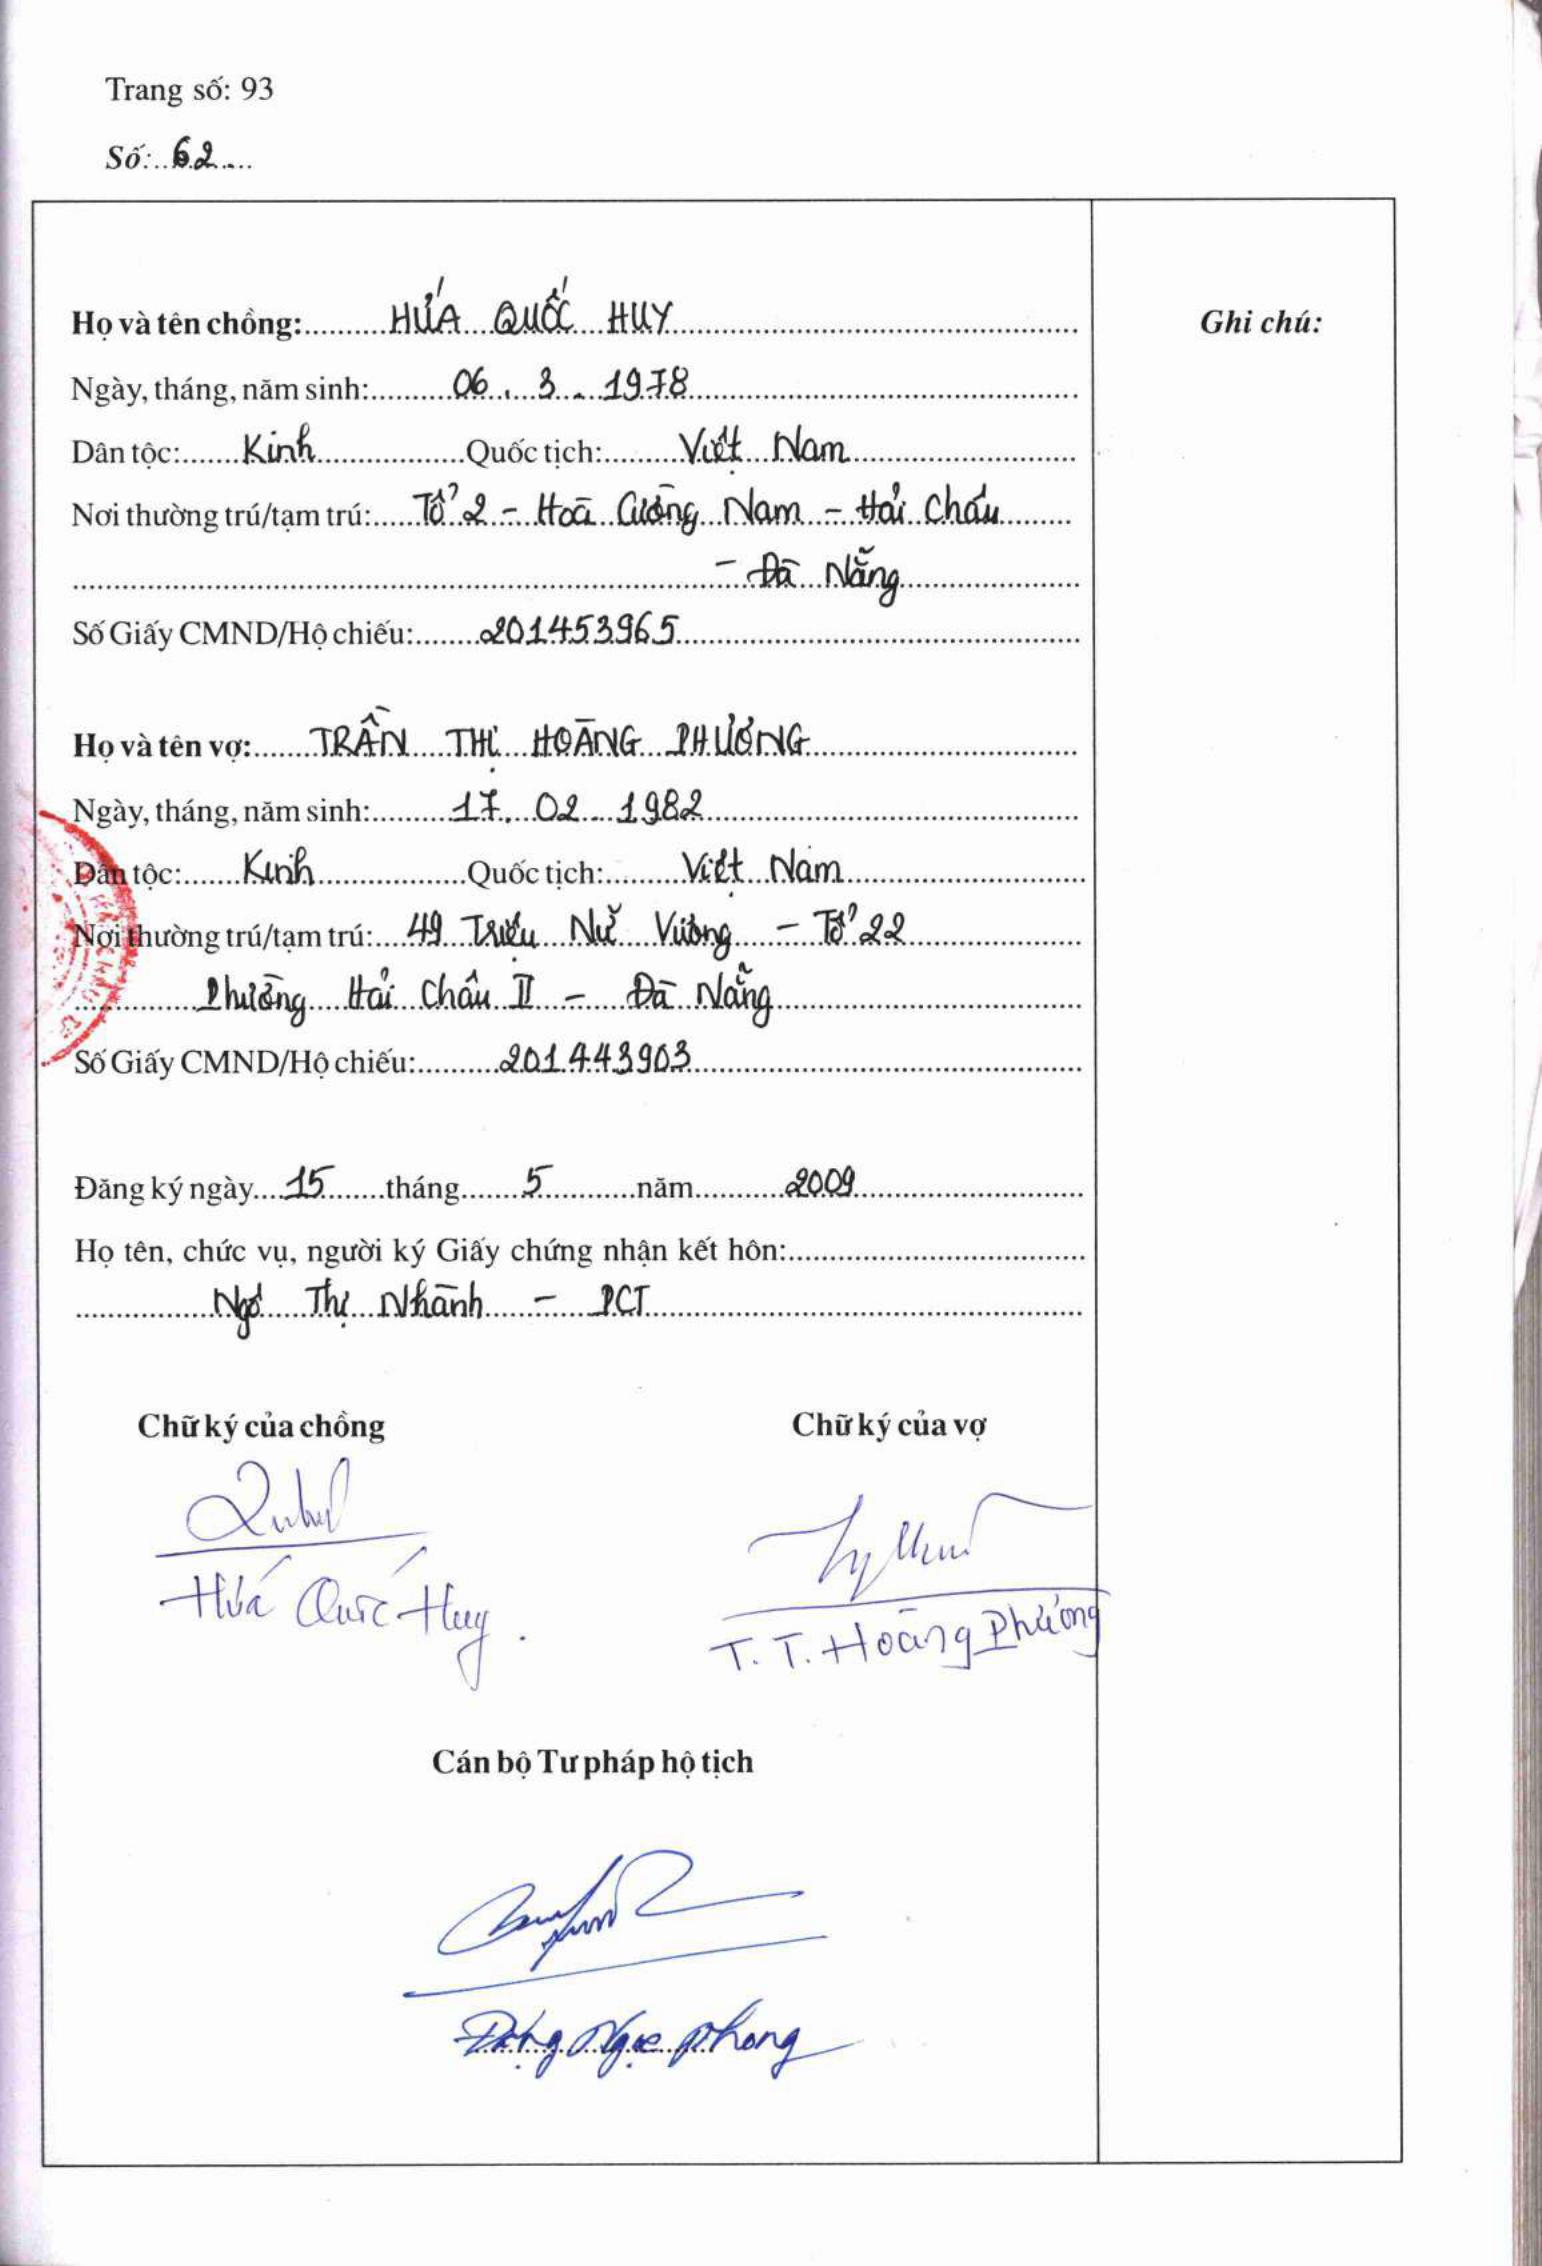 Trang số: 93
Số: 62
Họ và tên chồng: HỨA QUỐC HUY
Ghi chú:
Ngày, tháng, năm sinh: 06. 3. 1978
Dân tộc: Kinh Quốc tịch: Việt Nam
Nơi thường trú/tạm trú: Tổ 2 - Hoà Cường Nam - Hải Châu
- Đà Nẵng
Số Giấy CMND/Hộ chiếu: 201453965
Họ và tên vợ: TRẦN THỊ HOÀNG PHƯƠNG
Ngày, tháng, năm sinh: 17. 02. 1982
Dân tộc: Kinh Quốc tịch: Việt Nam
Nơi thường trú/tạm trú: 49 Triệu Nữ Vương - Tổ 22
Phường Hải Châu II - Đà Nẵng
Số Giấy CMND/Hộ chiếu: 201443903
Đăng ký ngày 15 tháng 5 năm 2009
Họ tên, chức vụ, người ký Giấy chứng nhận kết hôn:
Ngô Thị Nhành - PCT
Chữ ký của chồng Chữ ký của vợ
Hứa Quốc Huy.
T. T. Hoàng Phương
Cán bộ Tư pháp hộ tịch
Đặng Ngọc Phong